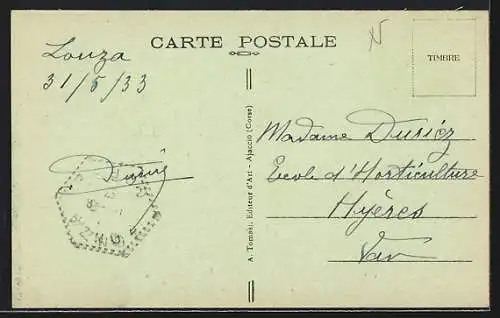 CARTE POSTALE
TIMBRE
Louza
31/5/33
A. Tomasi, Editeur d'Art - Ajaccio (Corse)
Madame Duriez
Ecole d'Horticulture
Hyères
Var